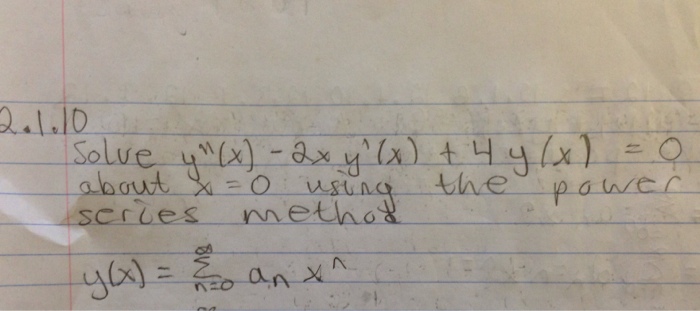 2.1.10
Solve y"(x) - 2x y'(x) + 4 y(x) = 0
about x = 0 using the power
series method
y(x) = ∑_{n=0}^{∞} a_n x^n